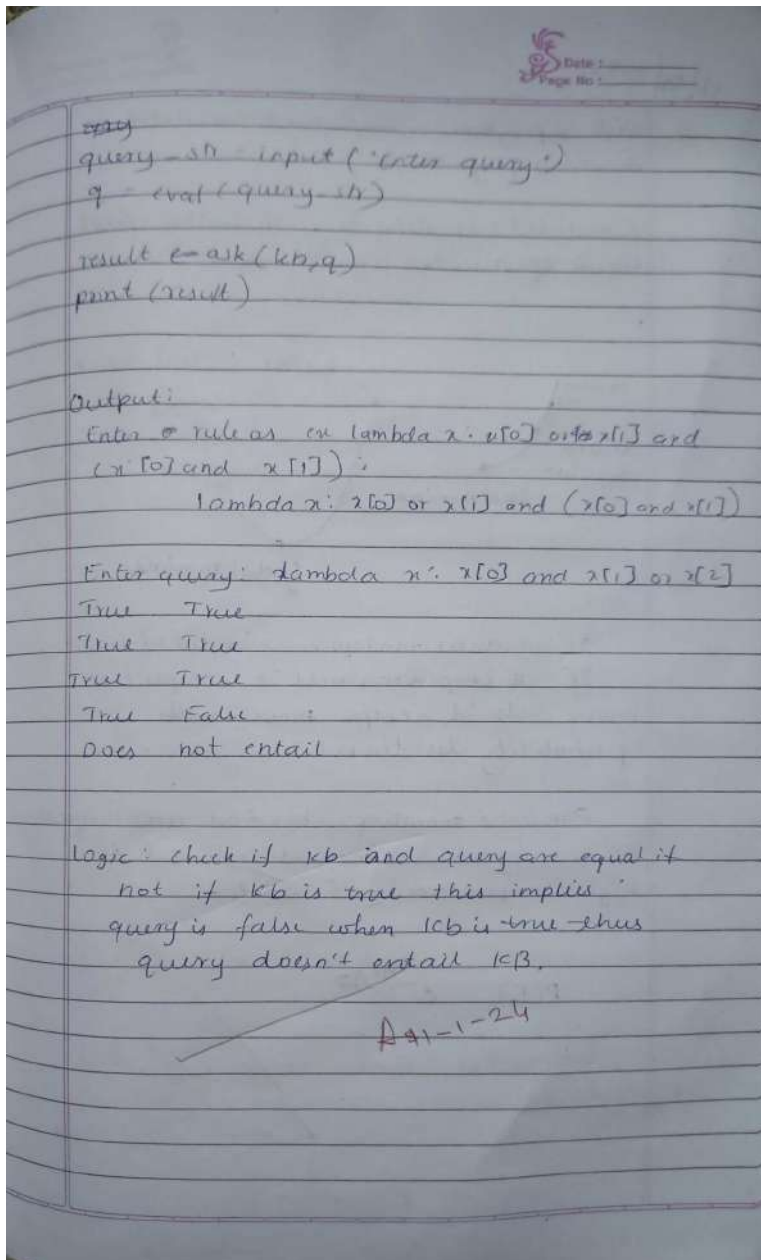 Date :
Page No :
query_str = input("Enter query:")
q = eval(query_str)
result = ask(kb, q)
print (result)
Output:
Enter rule as ex lambda x: x[0] or x[1] and
(x[0] and x[1]):
lambda x: x[0] or x[1] and (x[0] and x[1])
Enter query: lambda x: x[0] and x[1] or x[2]
True True
True True
True True
True False
Does not entail
Logic: check if kb and query are equal if
not if kb is true this implies
query is false when kb is true thus
query doesn't entail KB.